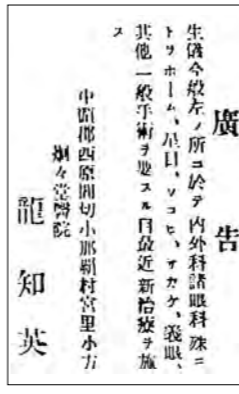 廣告
生儀今般左ノ所ニ於テ内外科諸眼科殊ニ
トラホーム、星目、ソコヒ、サカケ、義眼、
其他一般手術ヲ要スル目最近新治療ヲ施
ス
中頭郡西原間切小那覇村宮里小方
烟々堂醫院
龍知英